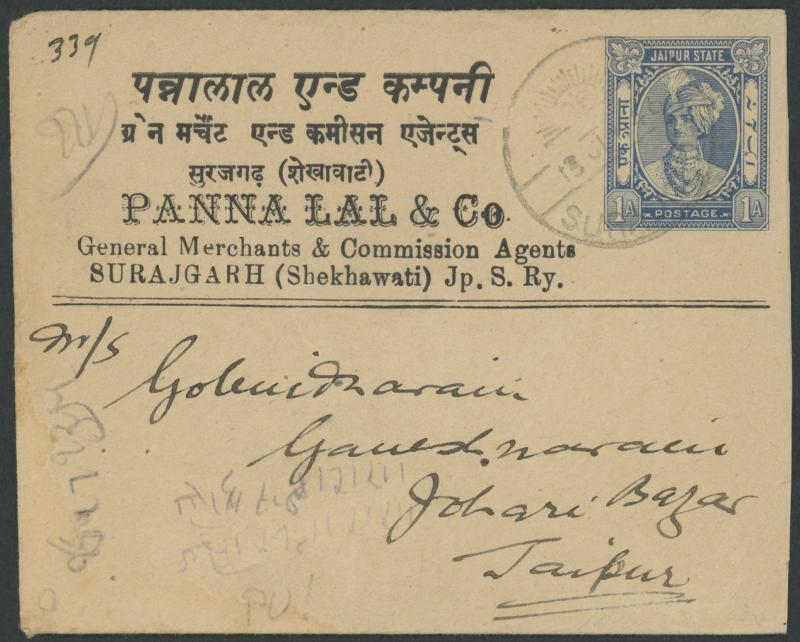 339
पन्नालाल एन्ड कम्पनी
ग्रेन मर्चेंट एन्ड कमीसन एजेन्ट्स
सुरजगढ़ (शेखावाटी)
PANNA LAL & Co.
General Merchants & Commission Agents
SURAJGARH (Shekhawati) Jp. S. Ry.
JAIPUR STATE
एक आना
1A POSTAGE 1A
M/S
Gobindnarain
Ganeshnarain
Johari Bazar
Jaipur